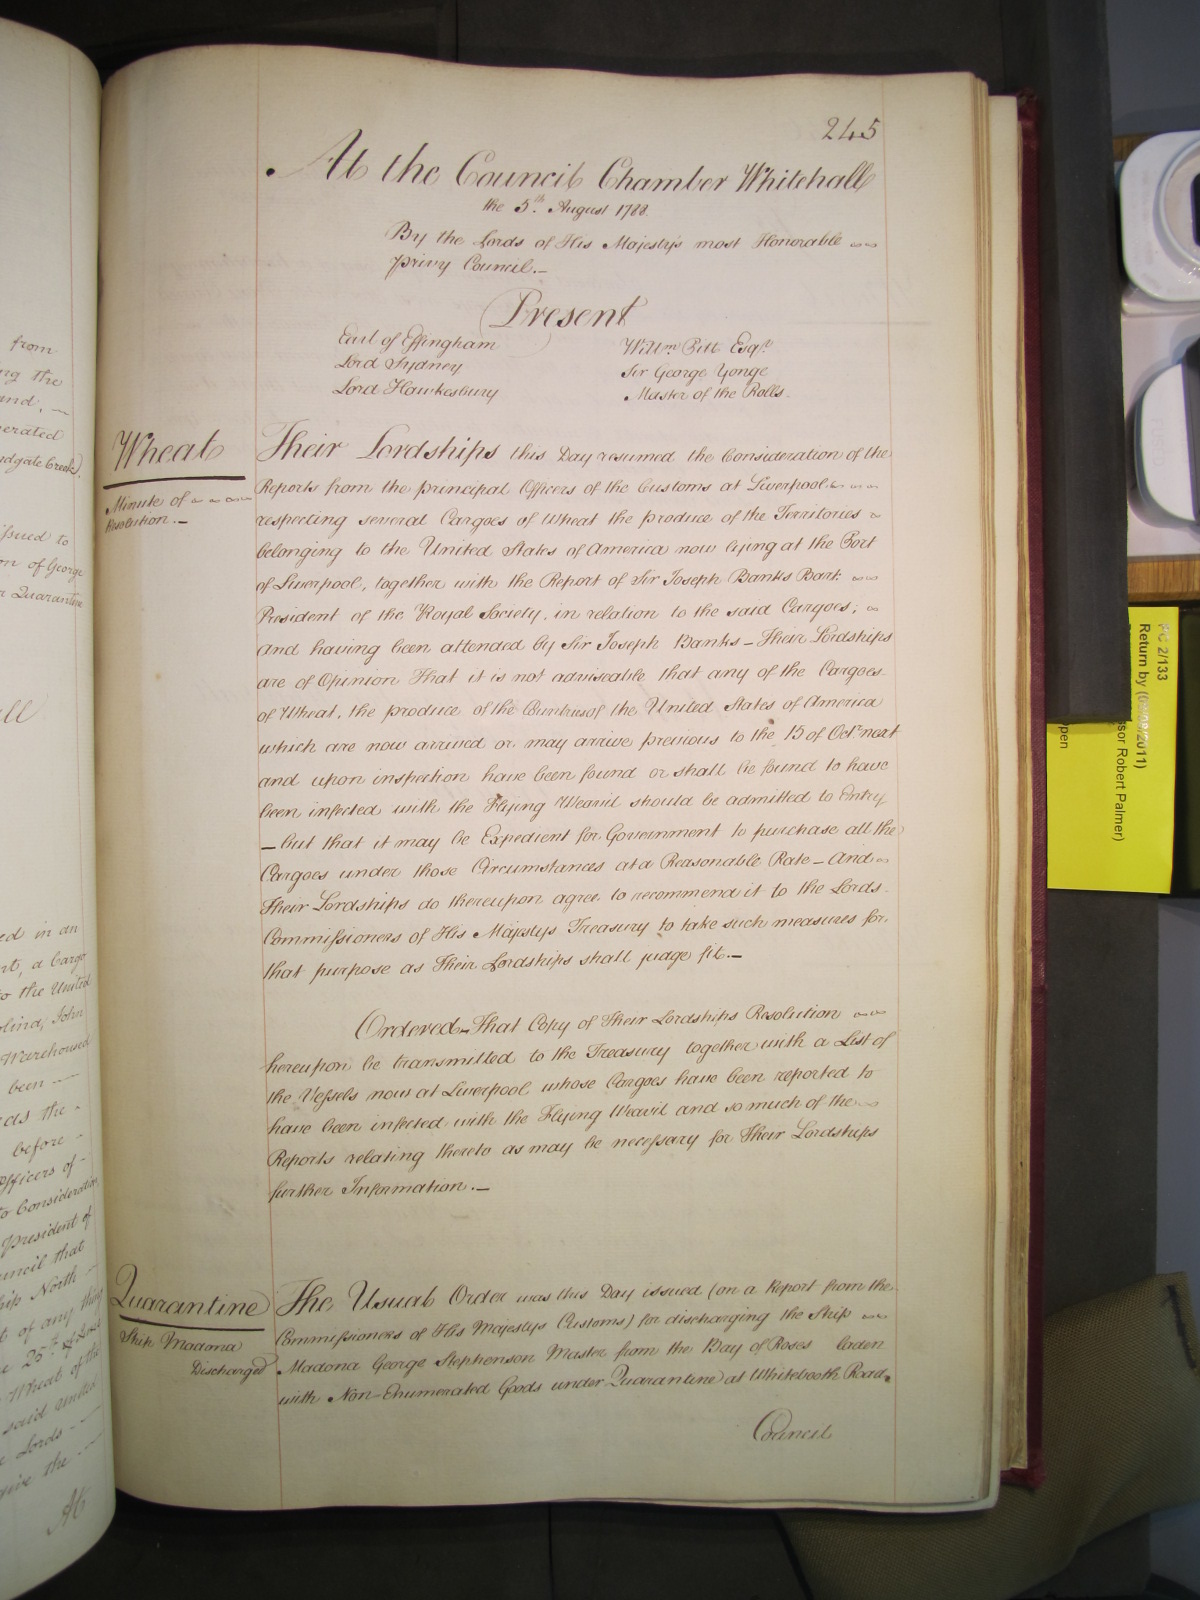 245
At the Council Chamber Whitehall
the 5th August 1788.
By the Lords of His Majesty's most Honorable
Privy Council.—
Present
Earl of Effingham
Lord Sydney
Lord Hawkesbury
Willm Pitt Esqr
Sir George Yonge
Master of the Rolls.
Wheat
Minute of
Resolution.—
Their Lordships this Day resumed the Consideration of the
Reports from the principal Officers of the Customs at Liverpool
respecting several Cargoes of Wheat the produce of the Territories
belonging to the United States of America now lying at the Port
of Liverpool, together with the Report of Sir Joseph Banks Bart.
President of the Royal Society, in relation to the said Cargoes;
and having been attended by Sir Joseph Banks — Their Lordships
are of Opinion That it is not adviseable that any of the Cargoes
of Wheat, the produce of the Countries of the United States of America
which are now arrived or may arrive previous to the 15 of Octr next
and upon inspection have been found or shall be found to have
been infected with the Flying Weavil should be admitted to Entry
— but that it may be Expedient for Government to purchase all the
Cargoes under those Circumstances at a Reasonable Rate — And
Their Lordships do thereupon agree to recommend it to the Lords
Commissioners of His Majestys Treasury to take such measures for
that purpose as Their Lordships shall judge fit.—
Ordered — That Copy of Their Lordships Resolution
hereupon be transmitted to the Treasury together with a List of
the Vessels now at Liverpool whose Cargoes have been reported to
have been infected with the Flying Weavil and so much of the
Reports relating thereto as may be necessary for Their Lordships
further Information.—
Quarantine
Ship Madona
Discharged
The Usual Order was this Day issued (on a Report from the
Commissioners of His Majestys Customs) for discharging the Ship
Madona George Stephenson Master from the Bay of Roses laden
with Non-Enumerated Goods under Quarantine at Whitebooth Road.
Council
from
ng the
and. —
nerated
ndgate Creek).
issued to
on of George
r Quarantine
all
ed in an
nt, a Cargo
to the United
olina, John
Warehoused
been —
ds the
before
Officers of
to Consideration
President of
uncil that
hip North
t of any thing
Wheat of the
said United
e Lords
give the
At
PC 2/133
Return by (09/08/2011)
ssor Robert Palmer)
pen